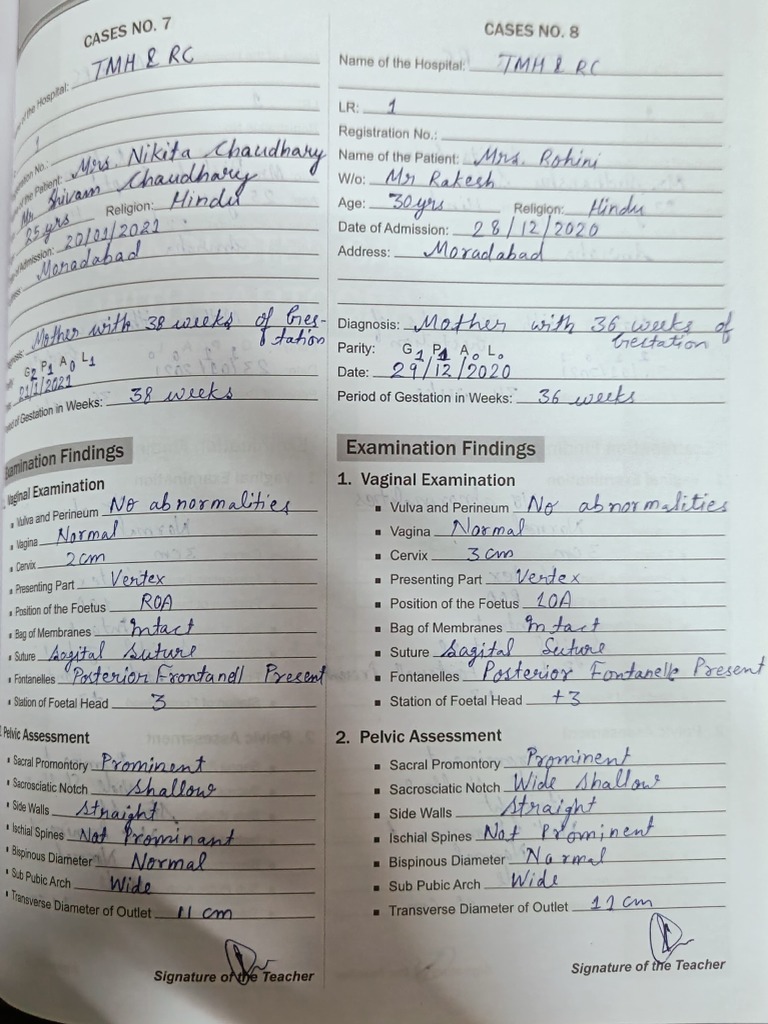 CASES NO. 7
of the Hospital: TMH & RC
1
ration No.:
of the Patient: Mrs. Nikita Chaudhary
Mr Shivam Chaudhary
25 yrs Religion: Hindu
of Admission: 20/01/2021
Moradabad
Mother with 38 weeks of Ges-
tation
G2 P1 A0 L1
21/1/2021
Period of Gestation in Weeks: 38 weeks
Examination Findings
Vaginal Examination
▪ Vulva and Perineum No abnormalities
▪ Vagina Normal
▪ Cervix 2cm
▪ Presenting Part Vertex
▪ Position of the Foetus ROA
▪ Bag of Membranes Intact
▪ Suture Sagital Suture
▪ Fontanelles Posterior Frontanell Present
▪ Station of Foetal Head 3
Pelvic Assessment
▪ Sacral Promontory Prominent
▪ Sacrosciatic Notch Shallow
▪ Side Walls Straight
▪ Ischial Spines Not Prominant
▪ Bispinous Diameter Normal
▪ Sub Pubic Arch Wide
▪ Transverse Diameter of Outlet 11 cm
Signature of the Teacher
CASES NO. 8
Name of the Hospital: TMH & RC
LR: 1
Registration No.:
Name of the Patient: Mrs. Rohini
W/o: Mr Rakesh
Age: 30yrs Religion: Hindu
Date of Admission: 28/12/2020
Address: Moradabad
Diagnosis: Mother with 36 weeks of
Gestation
Parity: G1 P1 A0 L0
Date: 29/12/2020
Period of Gestation in Weeks: 36 weeks
Examination Findings
1. Vaginal Examination
▪ Vulva and Perineum No abnormalities
▪ Vagina Normal
▪ Cervix 3cm
▪ Presenting Part Vertex
▪ Position of the Foetus LOA
▪ Bag of Membranes Intact
▪ Suture Sagital Suture
▪ Fontanelles Posterior Fontanelle Present
▪ Station of Foetal Head +3
2. Pelvic Assessment
▪ Sacral Promontory Prominent
▪ Sacrosciatic Notch Wide Shallow
▪ Side Walls Straight
▪ Ischial Spines Not Prominent
▪ Bispinous Diameter Normal
▪ Sub Pubic Arch Wide
▪ Transverse Diameter of Outlet 11 cm
Signature of the Teacher